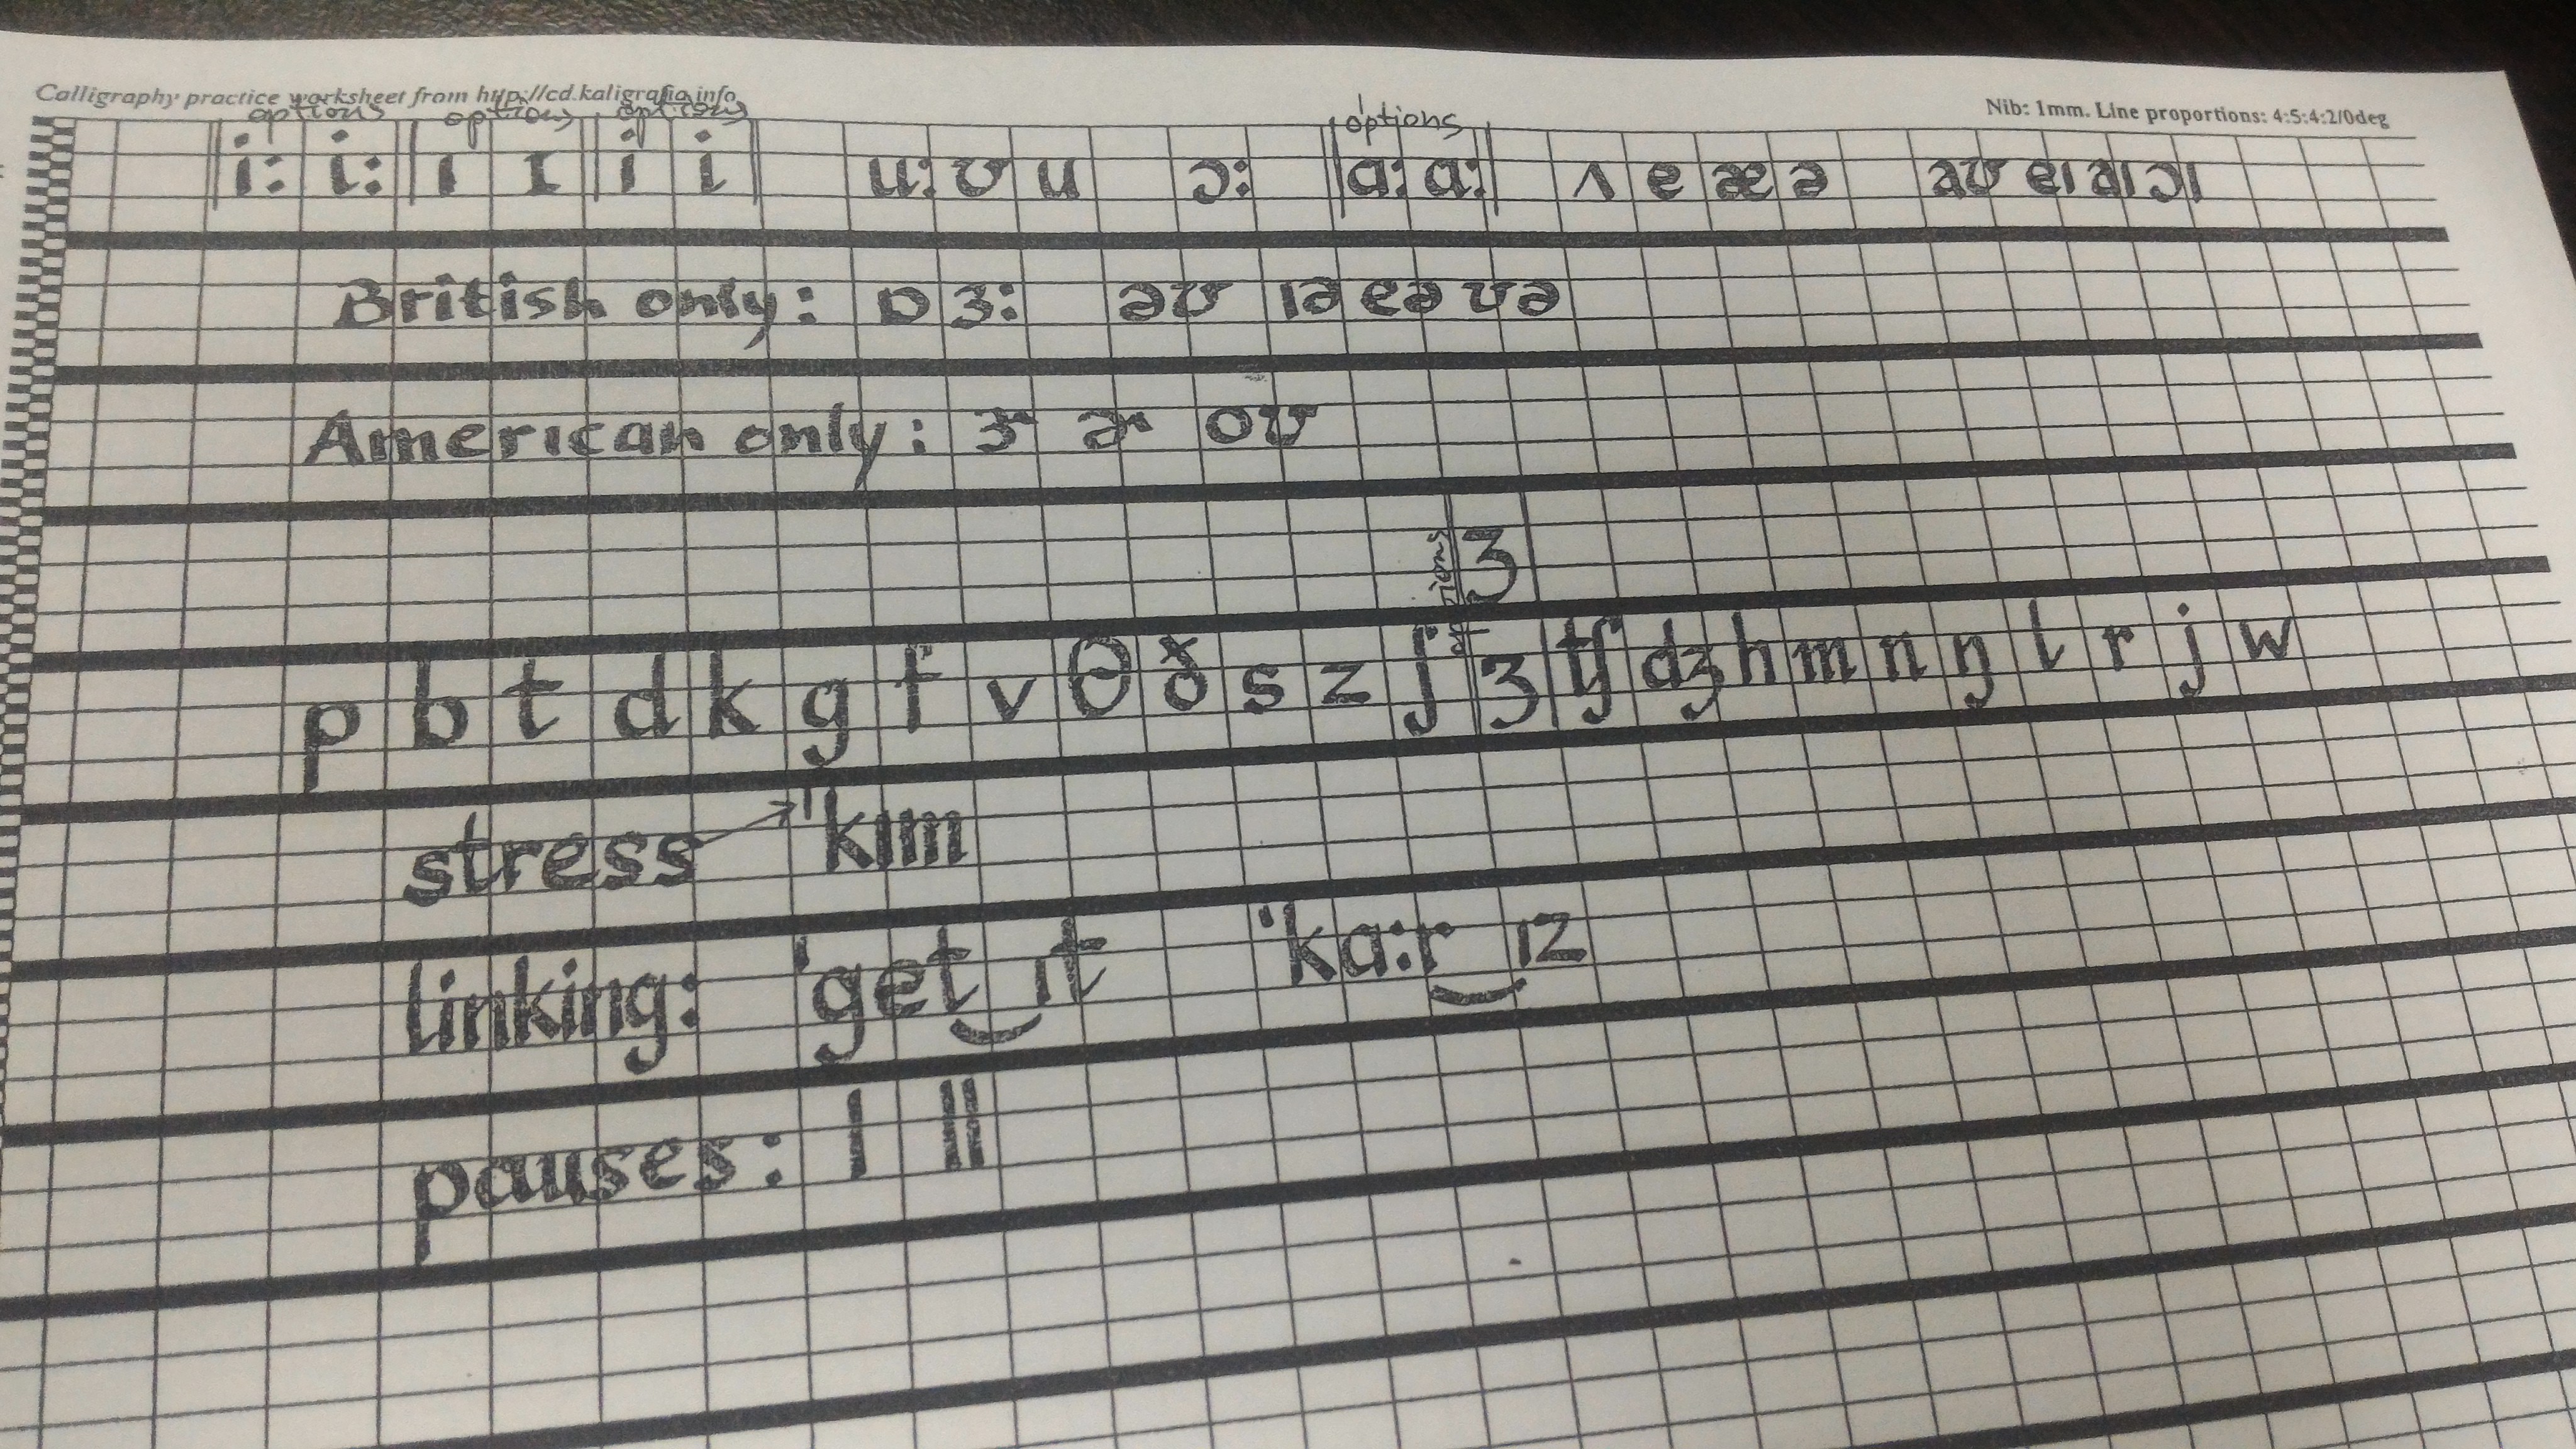 Calligraphy practice worksheet from http://cd.kaligrafia.info
Nib: 1mm. Line proportions: 4:5:4:2/0deg
options options options options
i: i: ı ɪ i i u: ʊ u ɔ: ɑ: ɑ: ʌ e æ ə aʊ eı aı ɔı
British only: ɒ ɜ: əʊ ıə eə ʊə
American only: ɝ ɚ oʊ
options ʒ
p b t d k g f v θ ð s z ʃ ʒ ʧ ʤ h m n ŋ l r j w
stress → ˈkım
linking: ˈget‿ıt ˈkɑ:r‿ız
pauses: | ||